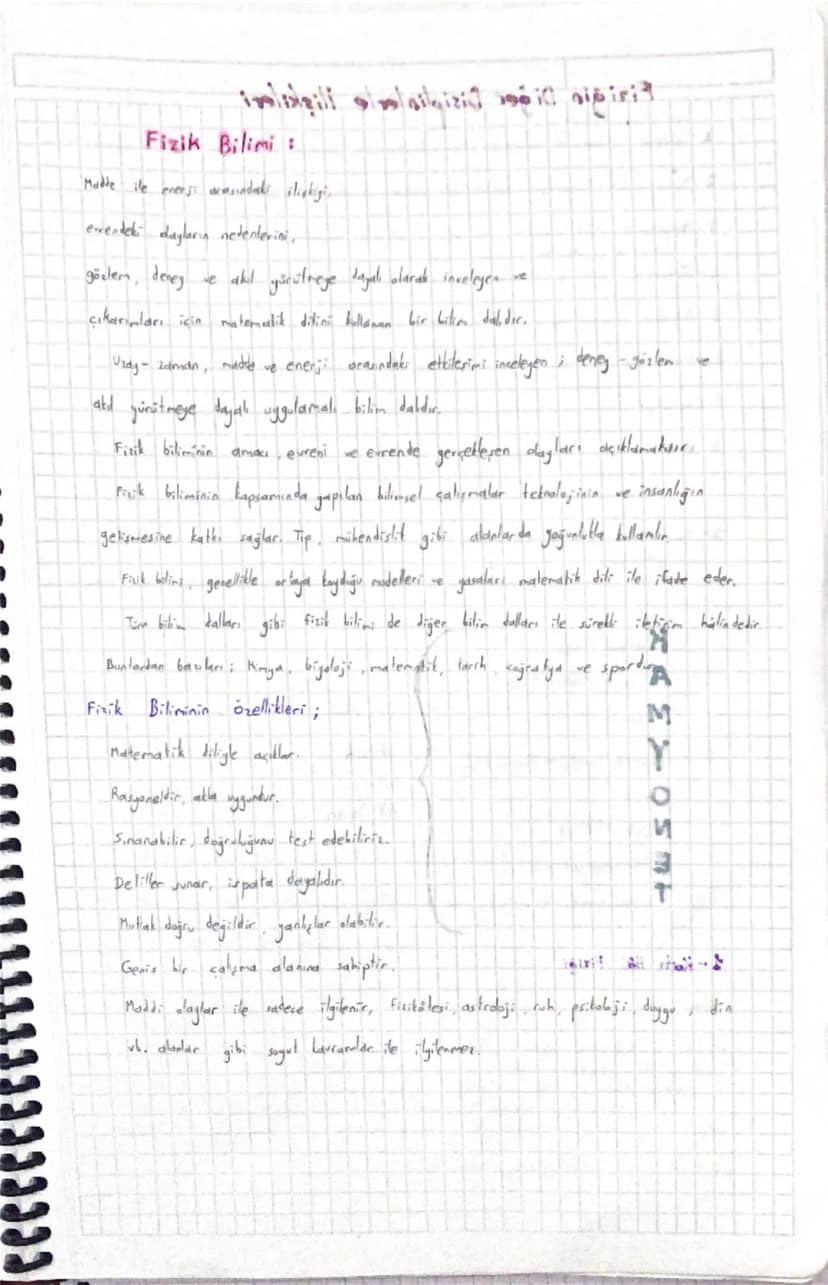 Fiziğin Diğer Disiplinlerle ilişkileri
Fizik Bilimi :
Madde ile enerji arasındaki ilişkiyi,
evrendeki olayların nedenlerini,
gözlem, deney ve akıl yürütmeye dayalı olarak inceleyen ve
çıkarımları için matematik dilini kullanan bir bilim dalıdır.
Uzay-zaman, madde ve enerji arasındaki etkileşimi inceleyen ; deney-gözlem ve
akıl yürütmeye dayalı uygulamalı bilim dalıdır.
Fizik biliminin amacı, evreni ve evrende gerçekleşen olayları açıklamaktır.
Fizik biliminin kapsamında yapılan bilimsel çalışmalar teknolojinin ve insanlığın
gelişmesine katkı sağlar. Tıp, mühendislik gibi alanlarda yoğunlukla kullanılır.
Fizik bilimi, genellikle ortaya koyduğu modelleri ve yasaları matematik dili ile ifade eder.
Tüm bilim dalları gibi fizik bilimi de diğer bilim dalları ile sürekli iletişim hâlindedir.
Bunlardan bazıları ; Kimya, biyoloji, matematik, tarih, coğrafya ve spordur.
K
A
M
Y
O
N
E
T
Fizik Biliminin özellikleri ;
Matematik diliyle açıklar.
Rasyoneldir, akla uygundur.
Sınanabilir, doğruluğunu test edebiliriz.
Deliller sunar, ispata dayalıdır.
Mutlak doğru değildir, yanlışlar olabilir.
Geniş bir çalışma alanına sahiptir.
Maddi olaylar ile sadece ilgilenir, fizikötesi, astroloji, ruh, psikoloji, duygu, din
vb. alanlar gibi soyut kavramlar ile ilgilenmez.